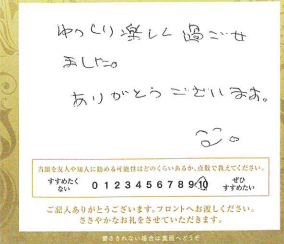 ゆっくり楽しく過ごせ
ました。
ありがとうございます。
当館を友人や知人に勧める可能性はどのくらいあるか、点数で教えてください。
すすめたく
ない
0 1 2 3 4 5 6 7 8 9 10
ぜひ
すすめたい
ご記入ありがとうございます。フロントへお渡しください。
ささやかなお礼をさせていただきます。
書ききれない場合は裏面へどうぞ